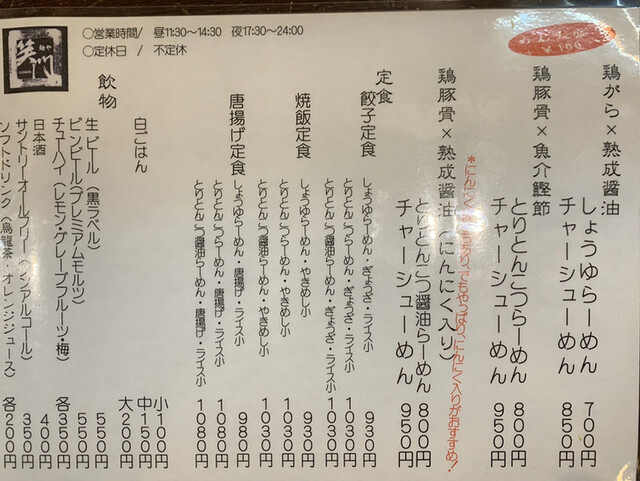 ○営業時間/ 昼11:30~14:30 夜17:30~24:00
○定休日 / 不定休
鶏がら×熟成醤油
しょうゆらーめん 700円
チャーシューめん 850円
鶏豚骨×魚介鰹節
とりとんこつらーめん 800円
チャーシューめん 950円
鶏豚骨×熟成醤油(にんにく入り)
とりとんこつ醤油らーめん 800円
チャーシューめん 950円
定食
餃子定食
しょうゆらーめん・ぎょうざ・ライス小 930円
とりとんこつらーめん・ぎょうざ・ライス小 1030円
とりとんこつ醤油らーめん・ぎょうざ・ライス小 1030円
焼飯定食
しょうゆらーめん・やきめし小 930円
とりとんこつらーめん・やきめし小 1030円
とりとんこつ醤油らーめん・やきめし小 1030円
唐揚げ定食
しょうゆらーめん・唐揚げ・ライス小 980円
とりとんこつらーめん・唐揚げ・ライス小 1080円
とりとんこつ醤油らーめん・唐揚げ・ライス小 1080円
白ごはん
小100円
中150円
大200円
飲物
生ビール(黒ラベル) 550円
ビンビール(プレミアムモルツ) 550円
チューハイ(レモン・グレープフルーツ・梅) 各350円
日本酒 400円
サントリーオールフリー(ノンアルコール) 350円
ソフトドリンク(烏龍茶・オレンジジュース) 各200円